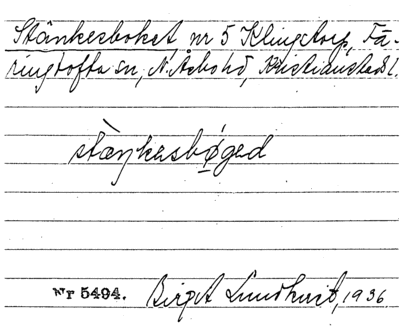 Stänkesboket nr 5 Klingstorp, Fä-
ringtofta sn, N. Åsbo hd, Kristianstads l.
stæŋkesbøged
Nr 5494. Birgit Lundkvist, 1936.